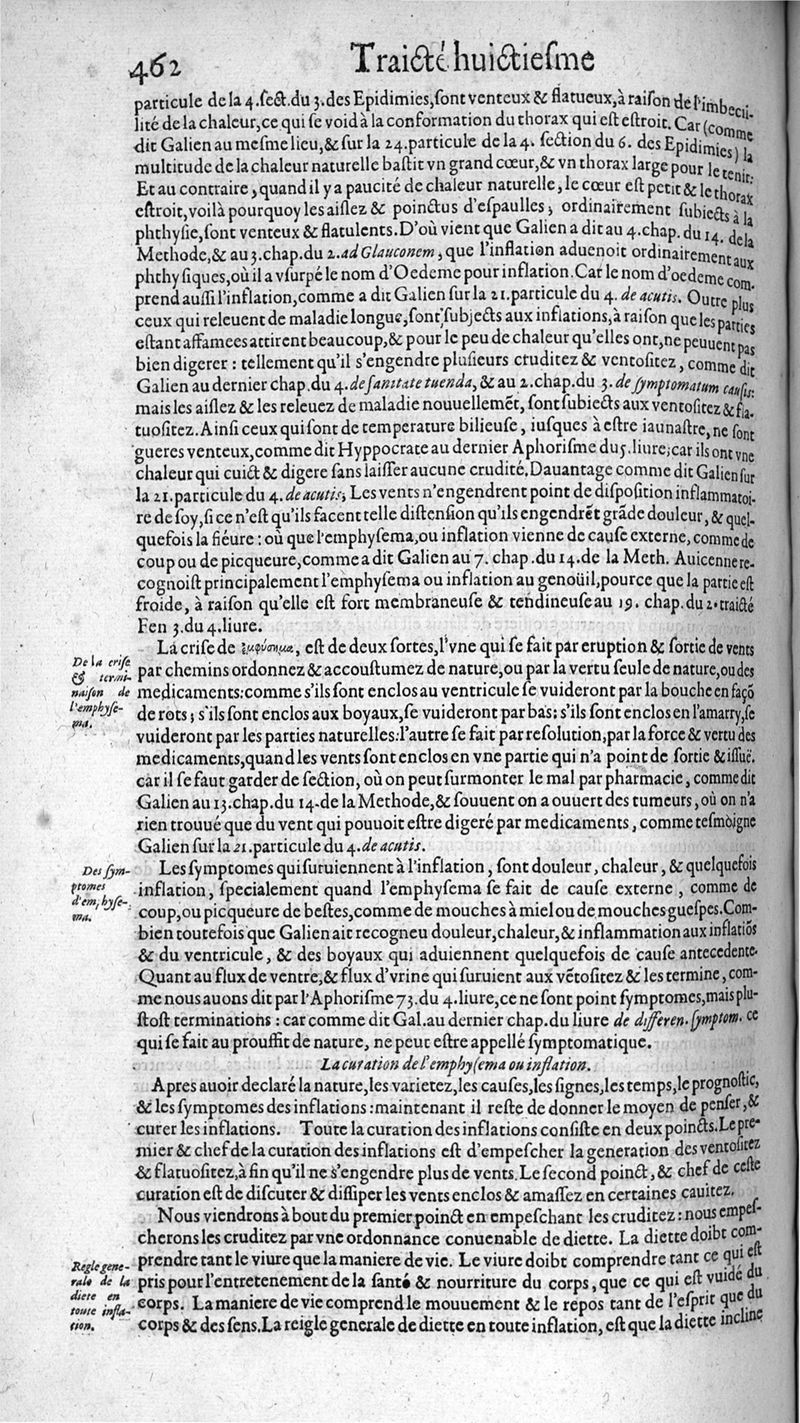 462 Traicté huictiesme
particule de la 4.sect.du 3.des Epidimies,sont venteux & flatueux,à raison de l'imbecil-
lité de la chaleur,ce qui se void à la conformation du thorax qui est estroit. Car (comme
dit Galien au mesme lieu,& sur la 24.particule de la 4. section du 6. des Epidimies) la
multitude de la chaleur naturelle bastit vn grand cœur,& vn thorax large pour le tenir:
Et au contraire, quand il y a paucité de chaleur naturelle, le cœur est petit & le thorax
estroit,voilà pourquoy les aislez & poinctus d'espaulles, ordinairement subiects à la
phthysie,sont venteux & flatulents.D'où vient que Galien a dit au 4.chap. du 14. de la
Methode,& au 3.chap.du 2.ad Glauconem, que l'inflation aduenoit ordinairement aux
phthysiques,où il a vsurpé le nom d'Oedeme pour inflation.Car le nom d'oedeme com-
prend aussi l'inflation,comme a dit Galien sur la 21.particule du 4. de acutis. Outre plus
ceux qui releuent de maladie longue,sont subjects aux inflations,à raison que les parties
estant affamees attirent beaucoup,& pour le peu de chaleur qu'elles ont,ne peuuent pas
bien digerer : tellement qu'il s'engendre plusieurs cruditez & ventositez, comme dit
Galien au dernier chap.du 4.de sanitate tuenda, & au 2.chap.du 3. de symptomatum causis:
mais les aislez & les releuez de maladie nouuellemēt, sont subiects aux ventositez & fla-
tuositez.Ainsi ceux qui sont de temperature bilieuse, iusques à estre iaunastre, ne sont
gueres venteux,comme dit Hyppocrate au dernier Aphorisme du 5.liure;car ils ont vne
chaleur qui cuict & digere sans laisser aucune crudité.Dauantage comme dit Galien sur
la 21.particule du 4. de acutis; Les vents n'engendrent point de disposition inflammatoi-
re de soy,si ce n'est qu'ils facent telle distension qu'ils engendrēt grāde douleur, & quel-
quefois la fiéure : où que l'emphysema,ou inflation vienne de cause externe, comme de
coup ou de picqueure,comme a dit Galien au 7. chap .du 14.de la Meth. Auicenne re-
cognoist principalement l'emphysema ou inflation au genoüil,pource que la partie est
froide, à raison qu'elle est fort membraneuse & tendineuse au 19. chap.du 2.traicté
Fen 3.du 4.liure.
De la crise & termi-naison de l'emphyse-ma.
La crise de ἐμφύσημα, est de deux sortes,l'vne qui se fait par eruption & sortie de vents
par chemins ordonnez & accoustumez de nature,ou par la vertu seule de nature,ou des
medicaments:comme s'ils sont enclos au ventricule se vuideront par la bouche en façõ
de rots; s'ils sont enclos aux boyaux,se vuideront par bas: s'ils sont enclos en l'amarry,se
vuideront par les parties naturelles:l'autre se fait par resolution,par la force & vertu des
medicaments,quand les vents sont enclos en vne partie qui n'a point de sortie & issuë.
car il se faut garder de section, où on peut surmonter le mal par pharmacie, comme dit
Galien au 13.chap.du 14.de la Methode,& souuent on a ouuert des tumeurs, où on n'a
rien trouué que du vent qui pouuoit estre digeré par medicaments, comme tesmoigne
Galien sur la 21.particule du 4.de acutis.
Des sym-ptomes d'emphyse-ma.
Les symptomes qui suruiennent à l'inflation, sont douleur, chaleur, & quelquefois
inflation, specialement quand l'emphysema se fait de cause externe, comme de
coup,ou picqueure de bestes,comme de mouches à miel ou de mouches guespes.Com-
bien toutefois que Galien ait recogneu douleur,chaleur,& inflammation aux inflatiõs
& du ventricule, & des boyaux qui aduiennent quelquefois de cause antecedente.
Quant au flux de ventre,& flux d'vrine qui suruient aux vētositez & les termine, com-
me nous auons dit par l'Aphorisme 73.du 4.liure,ce ne sont point symptomes,mais plu-
stost terminations : car comme dit Gal.au dernier chap.du liure de differen. symptom. ce
qui se fait au prouffit de nature, ne peut estre appellé symptomatique.
La curation de l'emphysema ou inflation.
Apres auoir declaré la nature,les varietez,les causes,les signes,les temps,le prognostic,
& les symptomes des inflations :maintenant il reste de donner le moyen de penser,&
curer les inflations. Toute la curation des inflations consiste en deux poincts.Le pre-
mier & chef de la curation des inflations est d'empescher la generation des ventositez
& flatuositez,à fin qu'il ne s'engendre plus de vents.Le second poinct, & chef de ceste
curation est de discuter & dissiper les vents enclos & amassez en certaines cauitez.
Nous viendrons à bout du premier poinct en empeschant les cruditez : nous empes-
cherons les cruditez par vne ordonnance conuenable de diette. La diette doibt com-
Regle gene-rale de la diete en toute infla-tion.
prendre tant le viure que la maniere de vie. Le viure doibt comprendre tant ce qui est
pris pour l'entretenement de la santé & nourriture du corps, que ce qui est vuidé du
corps. La maniere de vie comprend le mouuement & le repos tant de l'esprit que du
corps & des sens.La reigle generale de diette en toute inflation, est que la diette incline